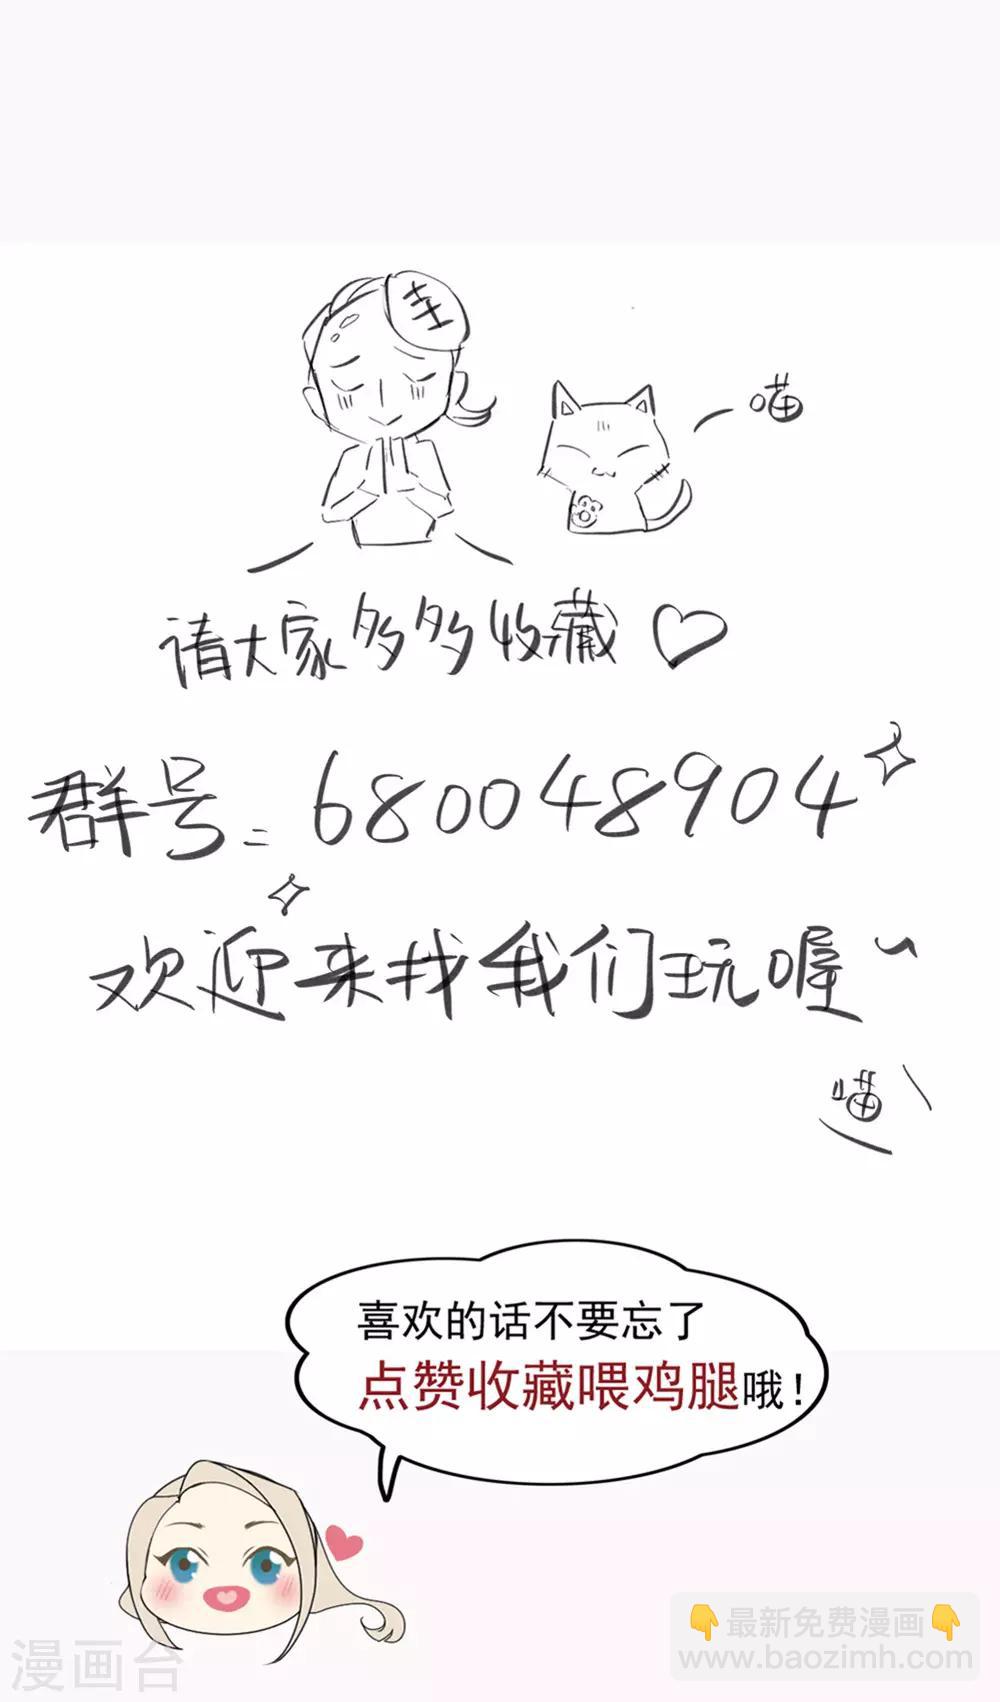 圭
喵
请大家多多收藏♡
群号=680048904
欢迎来找我们玩喔~
喵
喜欢的话不要忘了
点赞收藏喂鸡腿哦!
👇最新免费漫画👇
www.baozimh.com
漫画台